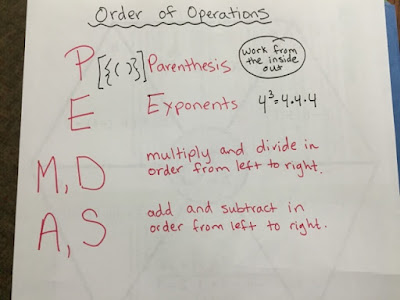 Order of Operations
P [{()}] Parenthesis
work from
the inside
out
E Exponents 4³=4·4·4
M, D multiply and divide in
order from left to right.
A, S add and subtract in
order from left to right.